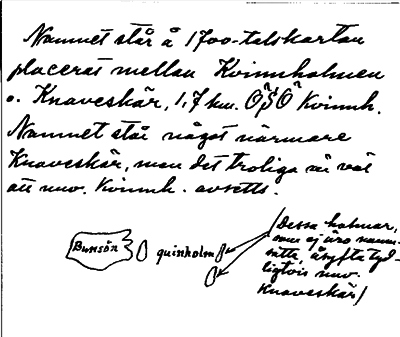 Namnet står å 1700-talskartan
placerat mellan Kvinnholmen
o. Knaveskär, 1,7 km. OSO Kvinnh.
Namnet står något närmare
Knaveskär, men det troliga är väl
att nuv. Kvinnh. avsetts.
Bunsön quinholm
/Dessa holmar,
som ej äro namn-
satta, åsyfta tyd-
ligtvis nuv.
Knaveskär/